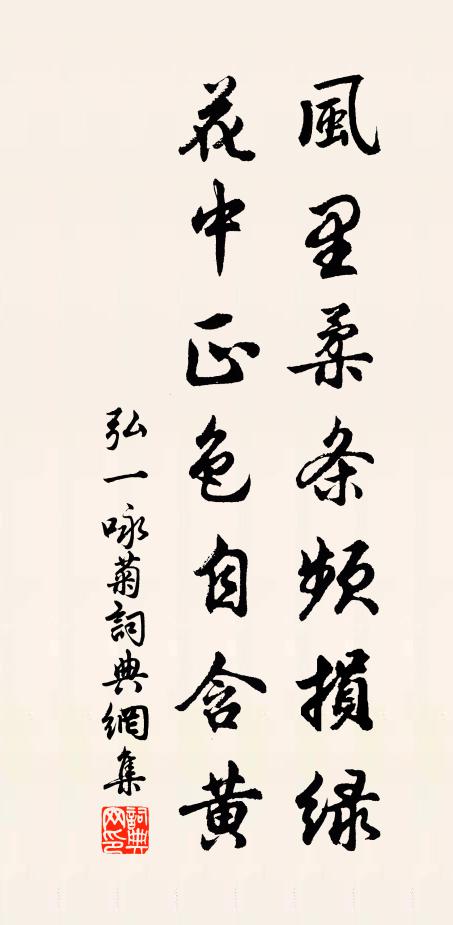 風里柔条频損緑
花中正色自含黄
弘一咏菊詞典網集
詞典网印